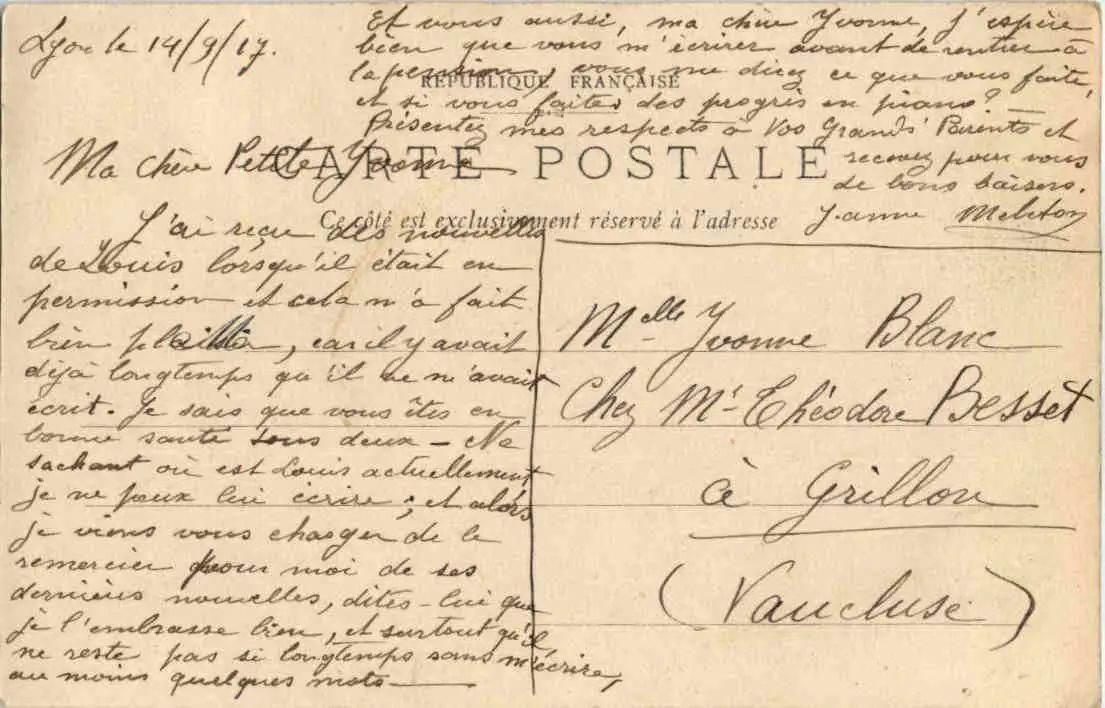 Lyon le 14/9/17.
RÉPUBLIQUE FRANÇAISE
CARTE POSTALE
Ce côté est exclusivement réservé à l'adresse
Ma chère Petite Yvonne
J'ai reçu des nouvelles
de Louis lorsqu'il était en
permission et cela m'a fait
bien plaisir, car il y avait
déjà longtemps qu'il ne m'avait
écrit. Je sais que vous êtes en
bonne santé tous deux – Ne
sachant où est Louis actuellement
je ne peux lui écrire ; et alors
je viens vous charger de le
remercier pour moi de ses
dernières nouvelles, dites-lui que
je l'embrasse bien, et surtout qu'il
ne reste pas si longtemps sans m'écrire,
au moins quelques mots —
Et vous aussi, ma chère Yvonne, j'espère
bien que vous m'écrirez avant de rentrer à
la pension, vous me direz ce que vous faite,
et si vous faites des progrès en piano ? —
Présentez mes respects à Vos Grands Parents et
recevez pour vous
de bons baisers.
Jeanne
Melle Yvonne Blanc
Chez Mr Théodore Besset
à Grillon
(Vaucluse)